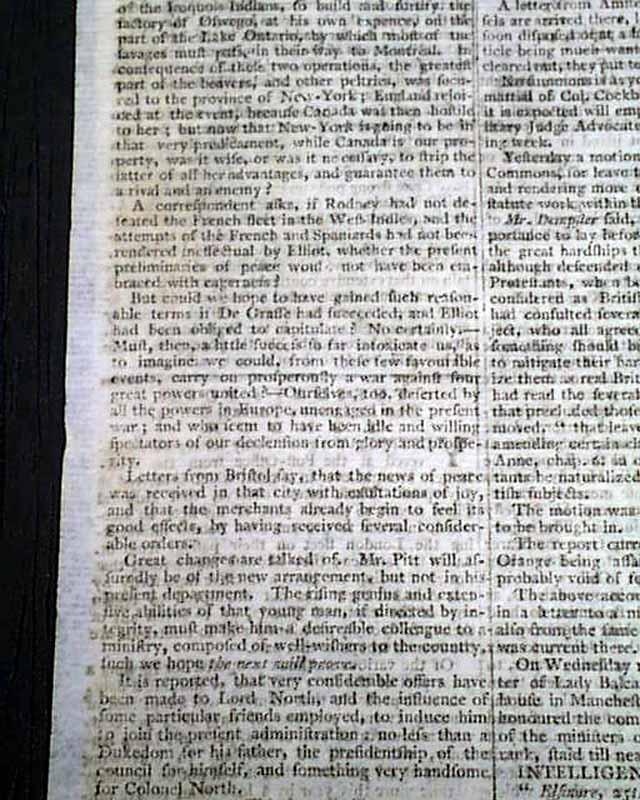 of the Iroquois Indians, to build and fortify the
factory of Oswego, at his own expence, on the
part of the Lake Ontario, by which most of the
savages must pass, in their way to Montreal. In
consequence of these two operations, the greatest
part of the beavers, and other peltries, was secu-
red to the province of New-York; England rejoi-
ced at the event, because Canada was then hostile
to her; but now that New-York is going to be in
that very predicament, while Canada is our pro-
perty, was it wise, or was it necessary, to strip the
latter of all her advantages, and guarantee them to
a rival and an enemy?
A correspondent asks, if Rodney had not de-
feated the French fleet in the West Indies, and the
attempts of the French and Spaniards had not been
rendered ineffectual by Elliot, whether the present
preliminaries of peace would not have been em-
braced with eagerness?
But could we hope to have gained such reason-
able terms if De Grasse had succeeded, and Elliot
had been obliged to capitulate? No certainly.—
Must, then, a little success so far intoxicate us, as
to imagine we could, from these few favourible
events, carry on prosperously a war against four
great powers united?—Ourselves, too, deserted by
all the powers in Europe, unengaged in the present
war; and who seem to have been idle and willing
spectators of our declension from glory and prospe-
rity.
Letters from Bristol say, that the news of peace
was received in that city with exultations of joy,
and that the merchants already begin to feel its
good effects, by having received several consider-
able orders.
Great changes are talked of. Mr. Pitt will as-
suredly be of the new arrangement, but not in his
present department. The rising genius and exten-
sive abilities of that young man, if directed by in-
tegrity, must make him a desireable colleague to a
ministry, composed of well-wishers to the country,
such we hope the next will prove.
It is reported, that very considerable offers have
been made to Lord North, and the influence of
some particular friends employed, to induce him
to join the present administration; no less than a
Dukedom for his father, the presidentship of the
council for himself, and something very handsome
for Colonel North.
A letter from Amst
sels are arrived there,
soon disposed of at a
ticle being much want
cleared out, they put to
No summons is as ye
martial of Col. Cockb
it is expected will emp
litary Judge Advocate
ing week.
Yesterday a motion
Commons, for leave t
and rendering more
statute work within th
Mr. Dempster said,
portance to lay before
the great hardships t
although descended
Protestants, when b
considered as Britis
had consulted several
ject, who all agree
something should b
to mitigate their har
ize them as real Brit
had read the several
that precluded those
moved, "that leave
amending certain c
Anne, chap. 6: an
tants be naturalized
tish subjects.
The motion was
to be brought in.
The report curre
Orange being assa
probably void of fo
The above accou
in a letter to a m
also from the same
was current there.
On Wednesday
ter of Lady Balca
house in Manches
honoured the com
of the ministers
rank, staid till nea
INTELLIGEN
" Elsinore,